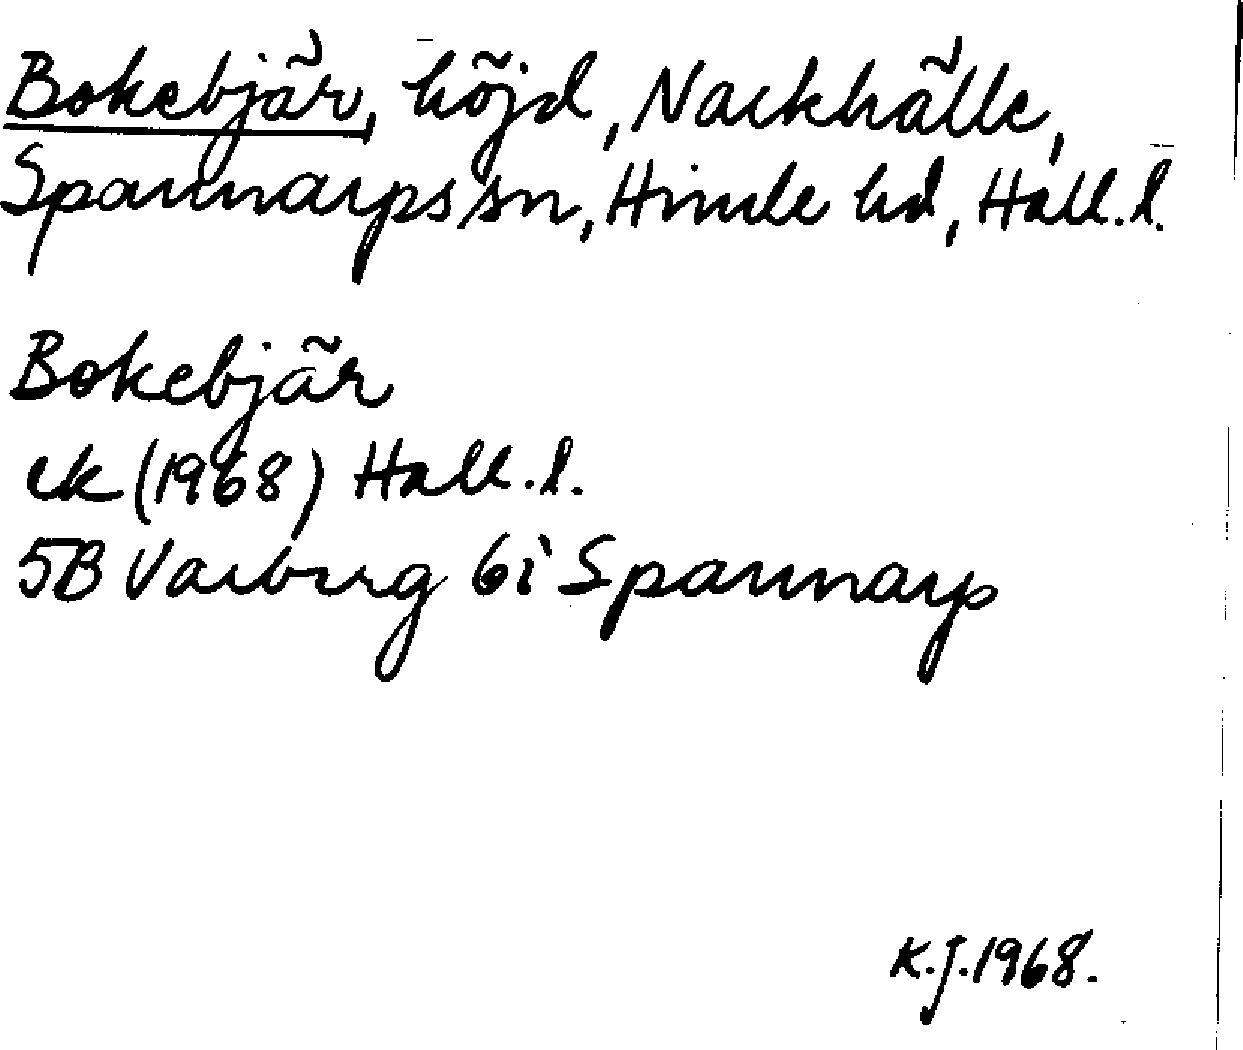 Bokebjär, höjd, Nackhälle,
Spannarps sn, Himle hd, Hall. l.
Bokebjär
ek (1968) Hall. l.
5B Varberg 6i Spannarp
K.J. 1968.